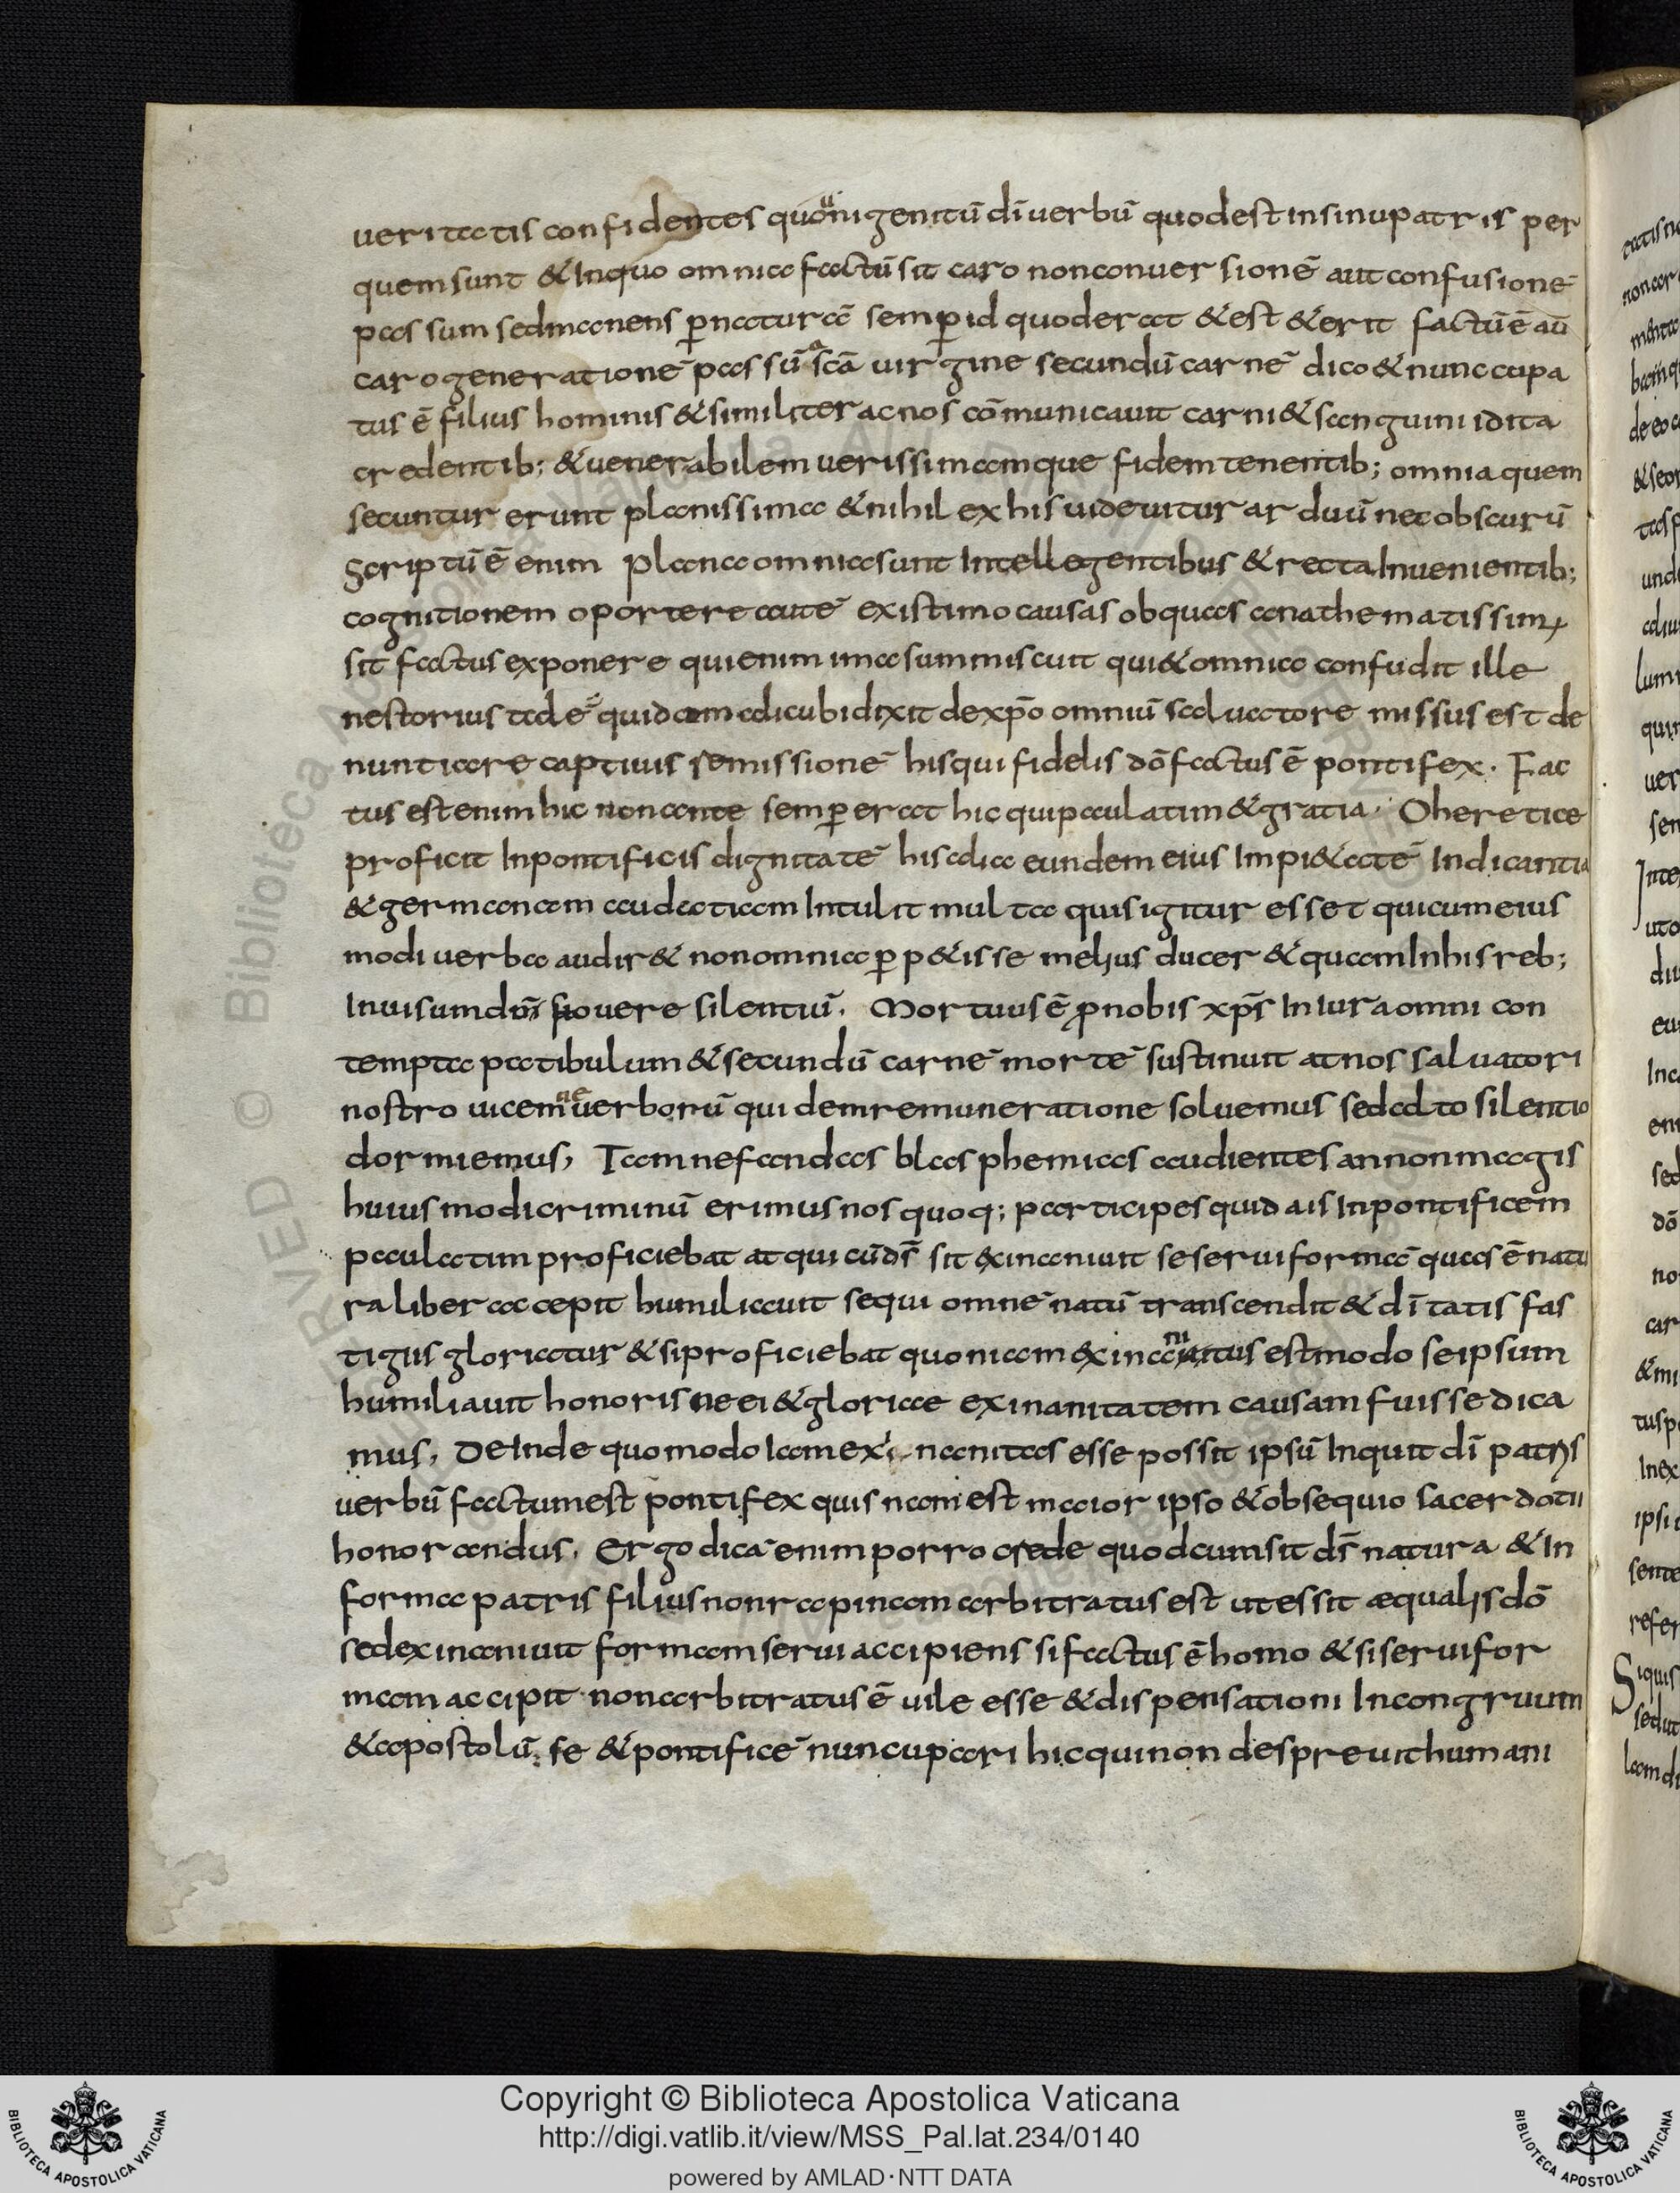 ueritatis confidentes quo unigenitū dī uerbū quod est in sinu patris per
quem sunt & In quo omnia factū sit caro non conuersionē aut confusionē
passum sed manens ꝑ naturā semꝑ id quod erat & est & erit factū ē aū
caro generationē passū a scā uirgine secundū carnē dico & nunccupa
tus ē filius hominis & similiter ac nos cōmunicauit carni & sanguini id ita
credentib; & uenerabilem uerissimamque fidem tenentib; omnia quem
secuntur erunt planissima & nihil ex his uideuitur arduū nec obscurū
Scriptū ē enim plana omnia sunt Intellegentibus & recta Inuenientib;
cognitionem oportere autē existimo causas ob quas anathematissim;
sit factus exponere qui enim ima summiscuit qui & omnia confudit ille
nestorius quidam alicubi dixit de xp̄o omniū saluatore missus est de
nuntiare captiuis remissionē his qui fidelis dō factus ē pontifex. Fac
tus est enim hic non ante semꝑ erat hic qui paulatim & gratia. O heretice
proficit In pontificis dignitatē his alia eundem eius Impi&atē Indicantia
& germanam audatiam Intulit multa quis igitur esset qui cum eius
modi uerba audir& non omnia ꝑp&isse melius ducer& quam In his reb;
Inuisum dm̄ fouere silentiū. Mortuus ē ꝓ nobis xp̄s Iniura omni con
tempta patibulum & secundū carnē mortē sustinuit at nos saluatori
nostro uicem ne uerborū quidem remuneratione soluemus sed alto silentio
dormiemus, Tam nefandas blasphemias audientes an non magis
huiusmodi criminū erimus nos quoq; participes quid ais In pontificem
paulatim proficiebat at qui cū d̄s sit exinaniuit se serui formā quas ē natu
ra liber accepit humiliauit se qui omnē natū transcendit & dī tatis fas
tigiis gloriatur & si proficiebat quoniam exinanitus est modo se ipsum
humiliauit honoris ne ei & gloriae exinanitatem causam fuisse dica
mus, De Inde quomodo Iam exinanitas esse possit ipsū Inquit dī patris
uerbū factum est pontifex quis nam est maior ipso & obsequio sacerdotii
honorandus, Ergo dicā enim porro crede quod cum sit d̄s natura & In
forma patris filius non rapinam arbitratus est ut essit æqualis dō
sed exinaniuit formam serui accipiens si factus ē homo & si serui for
mam accipit non arbitratus ē uile esse & dispensationi Incongruum
& apostolū se & pontificē nuncupari hic qui non despreuit humani
Copyright © Biblioteca Apostolica Vaticana
http://digi.vatlib.it/view/MSS_Pal.lat.234/0140
powered by AMLAD·NTT DATA